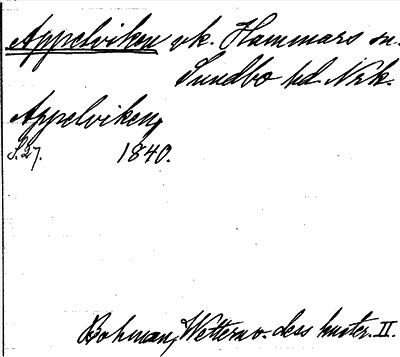 Appelviken vk. Hammars sn.
Sundbo hd Nrk.
Appelviken,
S. 27. 1840.
Bohman, Wettern o. dess kuster. II.